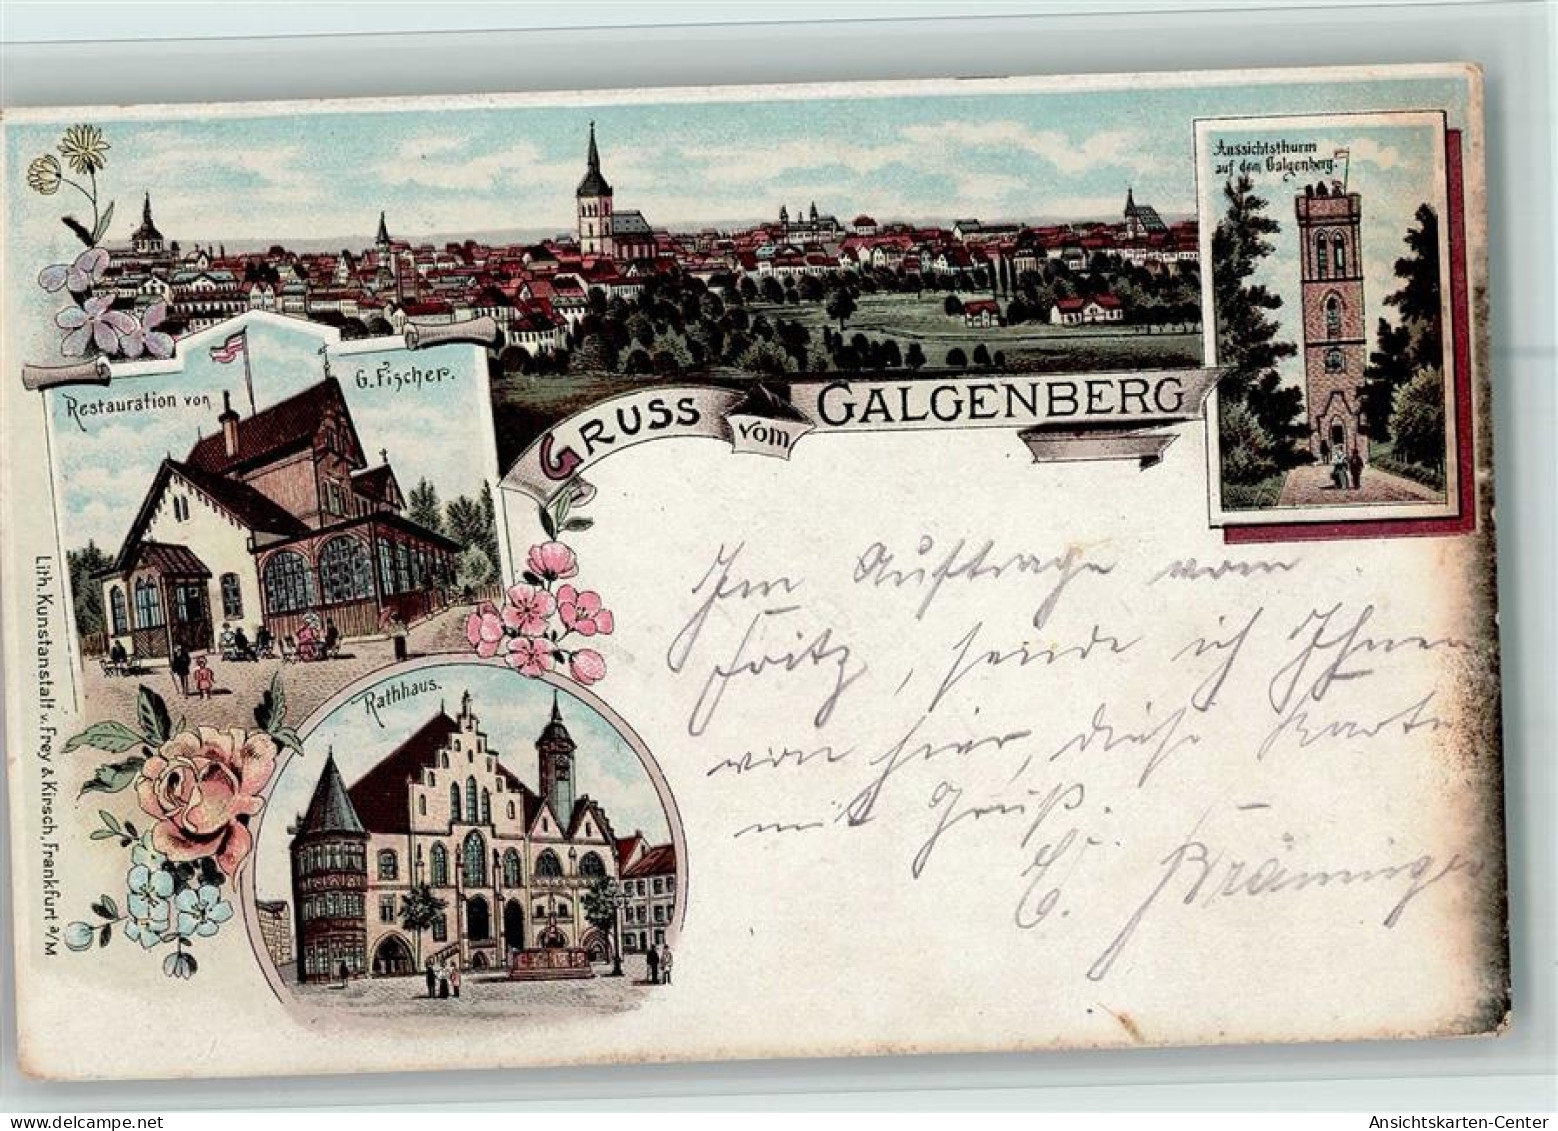 Aussichtsthurm
auf dem Galgenberg.
Restauration von G. Fischer.
GRUSS vom GALGENBERG
Rathhaus.
Lith. Kunstanstalt v. Frey & Kirsch, Frankfurt a/M
Im Auftrage vom
Fritz, sende ich Ihnen
von hier, diese Karte
mit Gruß.
E. Bräuninger
oldthing.de
Ansichtskarten-Center